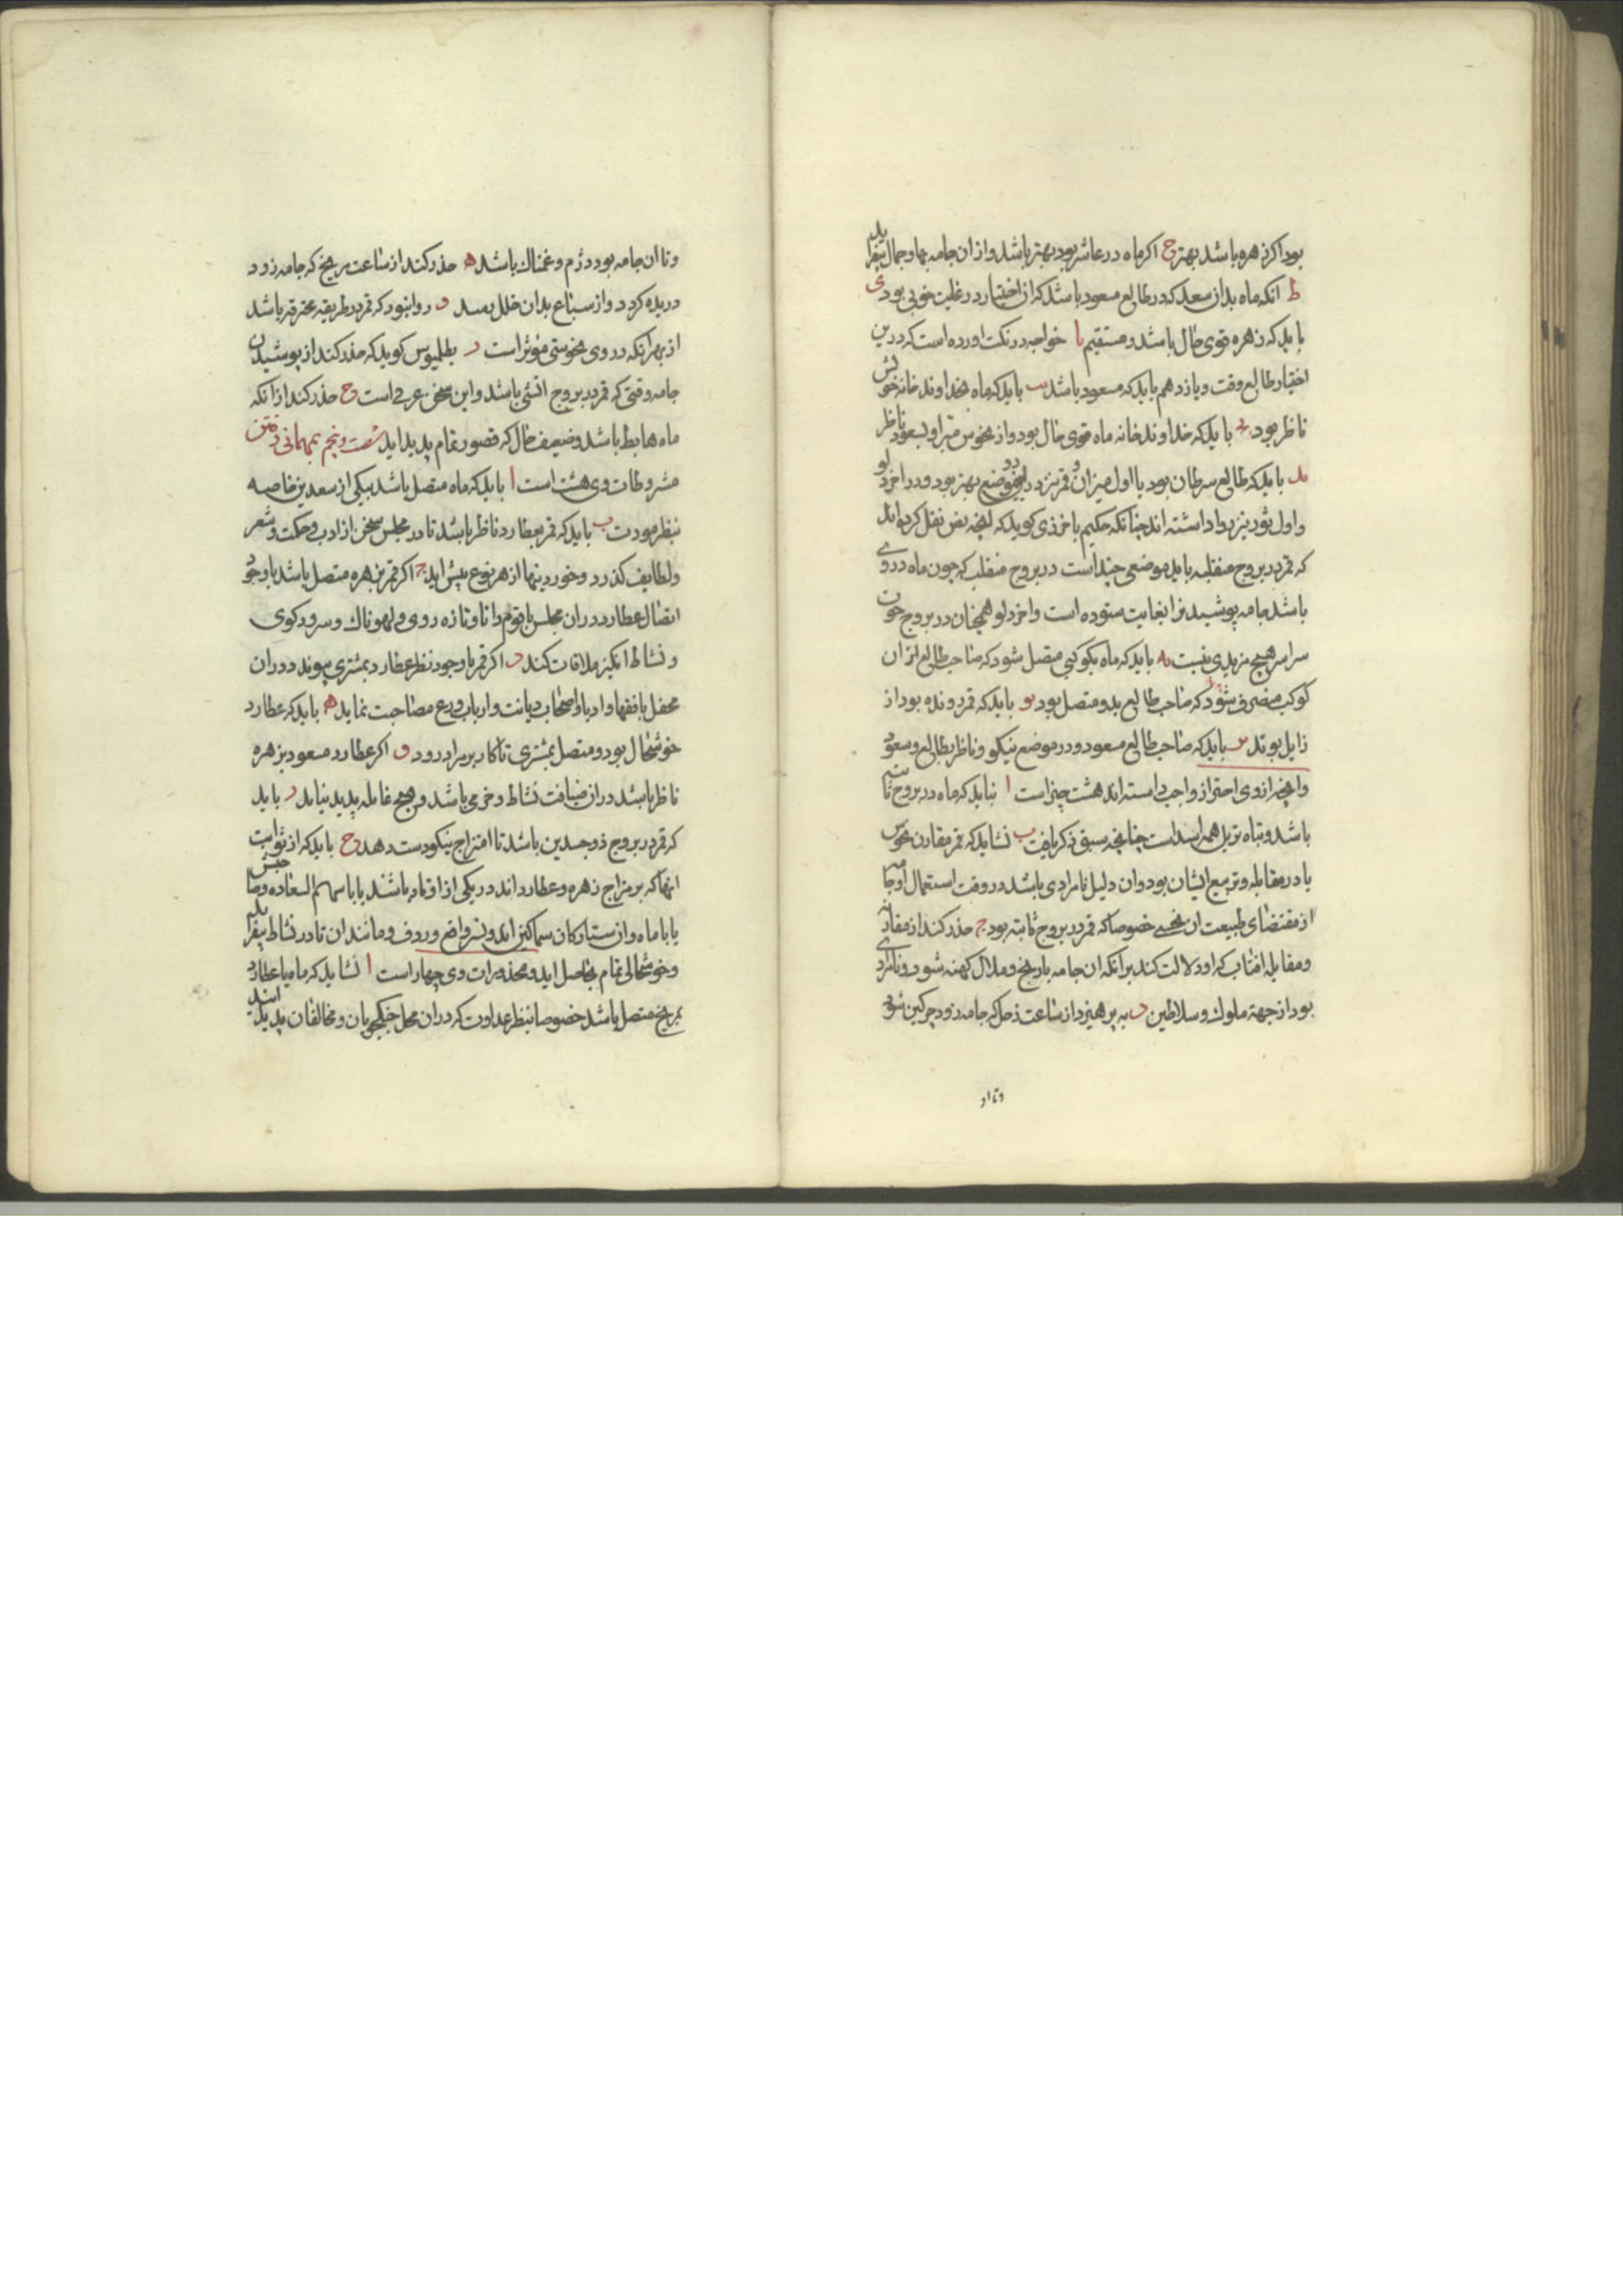 بود اکر زهره باشد بهتر ح اکر ماه در عاشر بود بهتر باشد و از ان جامه بها و جمال بیفزاید
ط انکه ماه بدان سعد که در طالع مسعود باشد که ان اختیار در غایت خوبی بود ی
باید که زهره قوی حال باشد و مستقیم یا خواجه در نکت اورده است که درین
اختیار طالع وقت و یازدهم باید که مسعود باشد یب باید که ماه بخداوند خانه خویش
ناظر بود یج باید که خداوند خانه ماه قوی حال بود و از نحوس مبرا و بسعود ناظر
ید باید که طالع سرطان بود یا اول میزان و قمر نیز در این دو موضع بهتر بود و در اخر دلو
و اول ثور نیز روا داشته اند چنانکه حکیم باخرزی کوید که انچه بعض نقل کرده اند
که قمر در بروج منقلبه باید موضعی چند است در بروج منقلب که چون ماه در وی
باشد جامه پوشیدن را بغایت ستوده است و اخر دلو همچنان در بروج چون
سرا سر هیچ مزیدی نیست یه باید که ماه بکوکبی متصل شود که صاحب طالع از ان
کوکب منصرف شود که صاحب طالع بدو متصل بود یو باید که قمر رونده بود از
زایل بوتد یز باید که صاحب طالع مسعود و در موضع نیکو و ناظر بطالع و مسعود
و انچه از وی احتراز واجب دانسته اند هشت چیز است ا نباید که ماه در بروج ثابته
باشد و تباه ترین همه اسد است چنانچه سبق ذکر یافت ب نشاید که قمر مقارن نحوس
یا در مقابله و تربیع ایشان بود و ان دلیل نامرادی باشد در وقت استعمال ان جامه
از مقتضای طبیعت ان نحس خصوصا که قمر در بروج ثابته بود ج حذر کند از مقارنه
و مقابله افتاب که او دلالت کند بر انکه ان جامه با رنج و ملال کهنه شود و نامرادی
بود از جهة ملوک و سلاطین د بپرهیزد از ساعت زحل که جامه زود چرکین شود
و تا ان
و تا ان جامه بود دژم و غمناک باشد ه حذر کند از ساعت مریخ که جامه زود
دریده کردد و از سباع بدان خلل رسد و روا نبود که قمر در طریقه محترقه باشد
از بهر انکه در وی نحوستی موثر است ز بطلمیوس کوید که حذر کند از پوشیدن
جامه وقتی که قمر در بروج انسی باشد و این سخن عرفی است ح حذر کند از انکه
ماه هابط باشد و ضعیف حال که قصور تمام پدید اید شصت و پنجم بمهمانی رفتن
مشروطات وی هشت است ا باید که ماه متصل باشد بیکی از سعدین خاصه
بنظر مودت ب باید که قمر بعطارد ناظر باشد تا در مجلس سخن از ادب و حکمت و شعر
و لطایف کذرد و خوردینها از هر نوع پیش اید ج اکر قمر بزهره متصل باشد باوجود
اتصال عطارد در ان مجلس با قوم دانا و تازه روی و لهوناک و سرودکوی
و نشاط انکیز ملاقات کند د اکر قمر باوجود نظر عطارد بمشتری پیوندد در ان
محفل با فقها و ادبا و اصحاب دیانت و ارباب ورع مصاحبت نماید ه باید که عطارد
خوشحال بود و متصل بمشتری تا کار بر مراد رود و اکر عطارد مسعود بزهره
ناظر باشد در ان ضیافت نشاط و خرمی باشد و هیچ غایله پدید نیاید ز باید
که قمر در بروج ذوجسدین باشد تا امتزاج نیکو دست دهد ح باید که از ثوابت
انها که بر مزاج زهره و عطارد اند در یکی از اوتاد باشند یا با سهم السعاده و صاحبش
یا با ماه و ان ستارکان سماکین اند و نسر واقع و ردف و مانند ان تا در نشاط بیفزاید
و خوشحالی تمام بحاصل اید و محذورات وی چهار است ا نشاید که ماه یا عطارد
بمریخ متصل باشد خصوصا بنظر عداوت که در ان محل جنکجویان و مخالفان پدید ایند